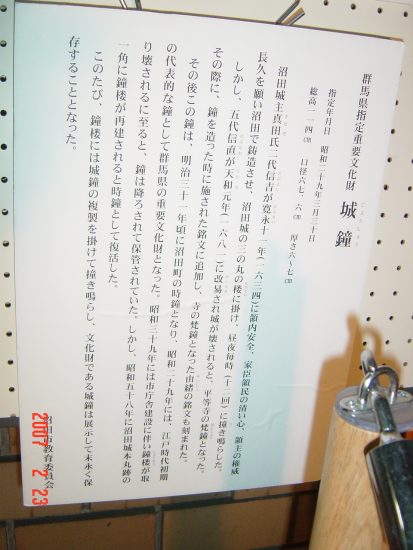 群馬県指定重要文化財 城鐘
じょうしょう
指定年月日 昭和二十九年三月三十日
総高一一四㎝ 口径六七、六㎝ 厚さ六〜七㎝
沼田城主真田氏二代信吉が寛永十一年(一六三四)に領内安全、家臣領民の清い心、領主の権威
長久を願い沼田で鋳造させ、沼田城の三の丸の楼に掛け、昼夜毎時(十二回)に撞き鳴らした。
しかし、五代信直が天和元年(一六八一)に改易され城が壊されると、平等寺の梵鐘となった。
その際に、鐘を造った時に施された銘文に追加し、寺の梵鐘となった由緒の銘文も刻まれた。
その後この鐘は、明治三十一年頃に沼田町の時鐘となり、昭和二十九年には、江戸時代初期
の代表的な鐘として群馬県の重要文化財となった。昭和三十九年には市庁舎建設に伴い鐘楼が取
り壊されるに至ると、鐘は降ろされて保管されていた。しかし、昭和五十八年に沼田城本丸跡の
一角に鐘楼が再建されると時鐘として復活した。
このたび、鐘楼には城鐘の複製を掛けて撞き鳴らし、文化財である城鐘は展示して末永く保
存することとなった。
沼田市教育委員会
2007 2 23